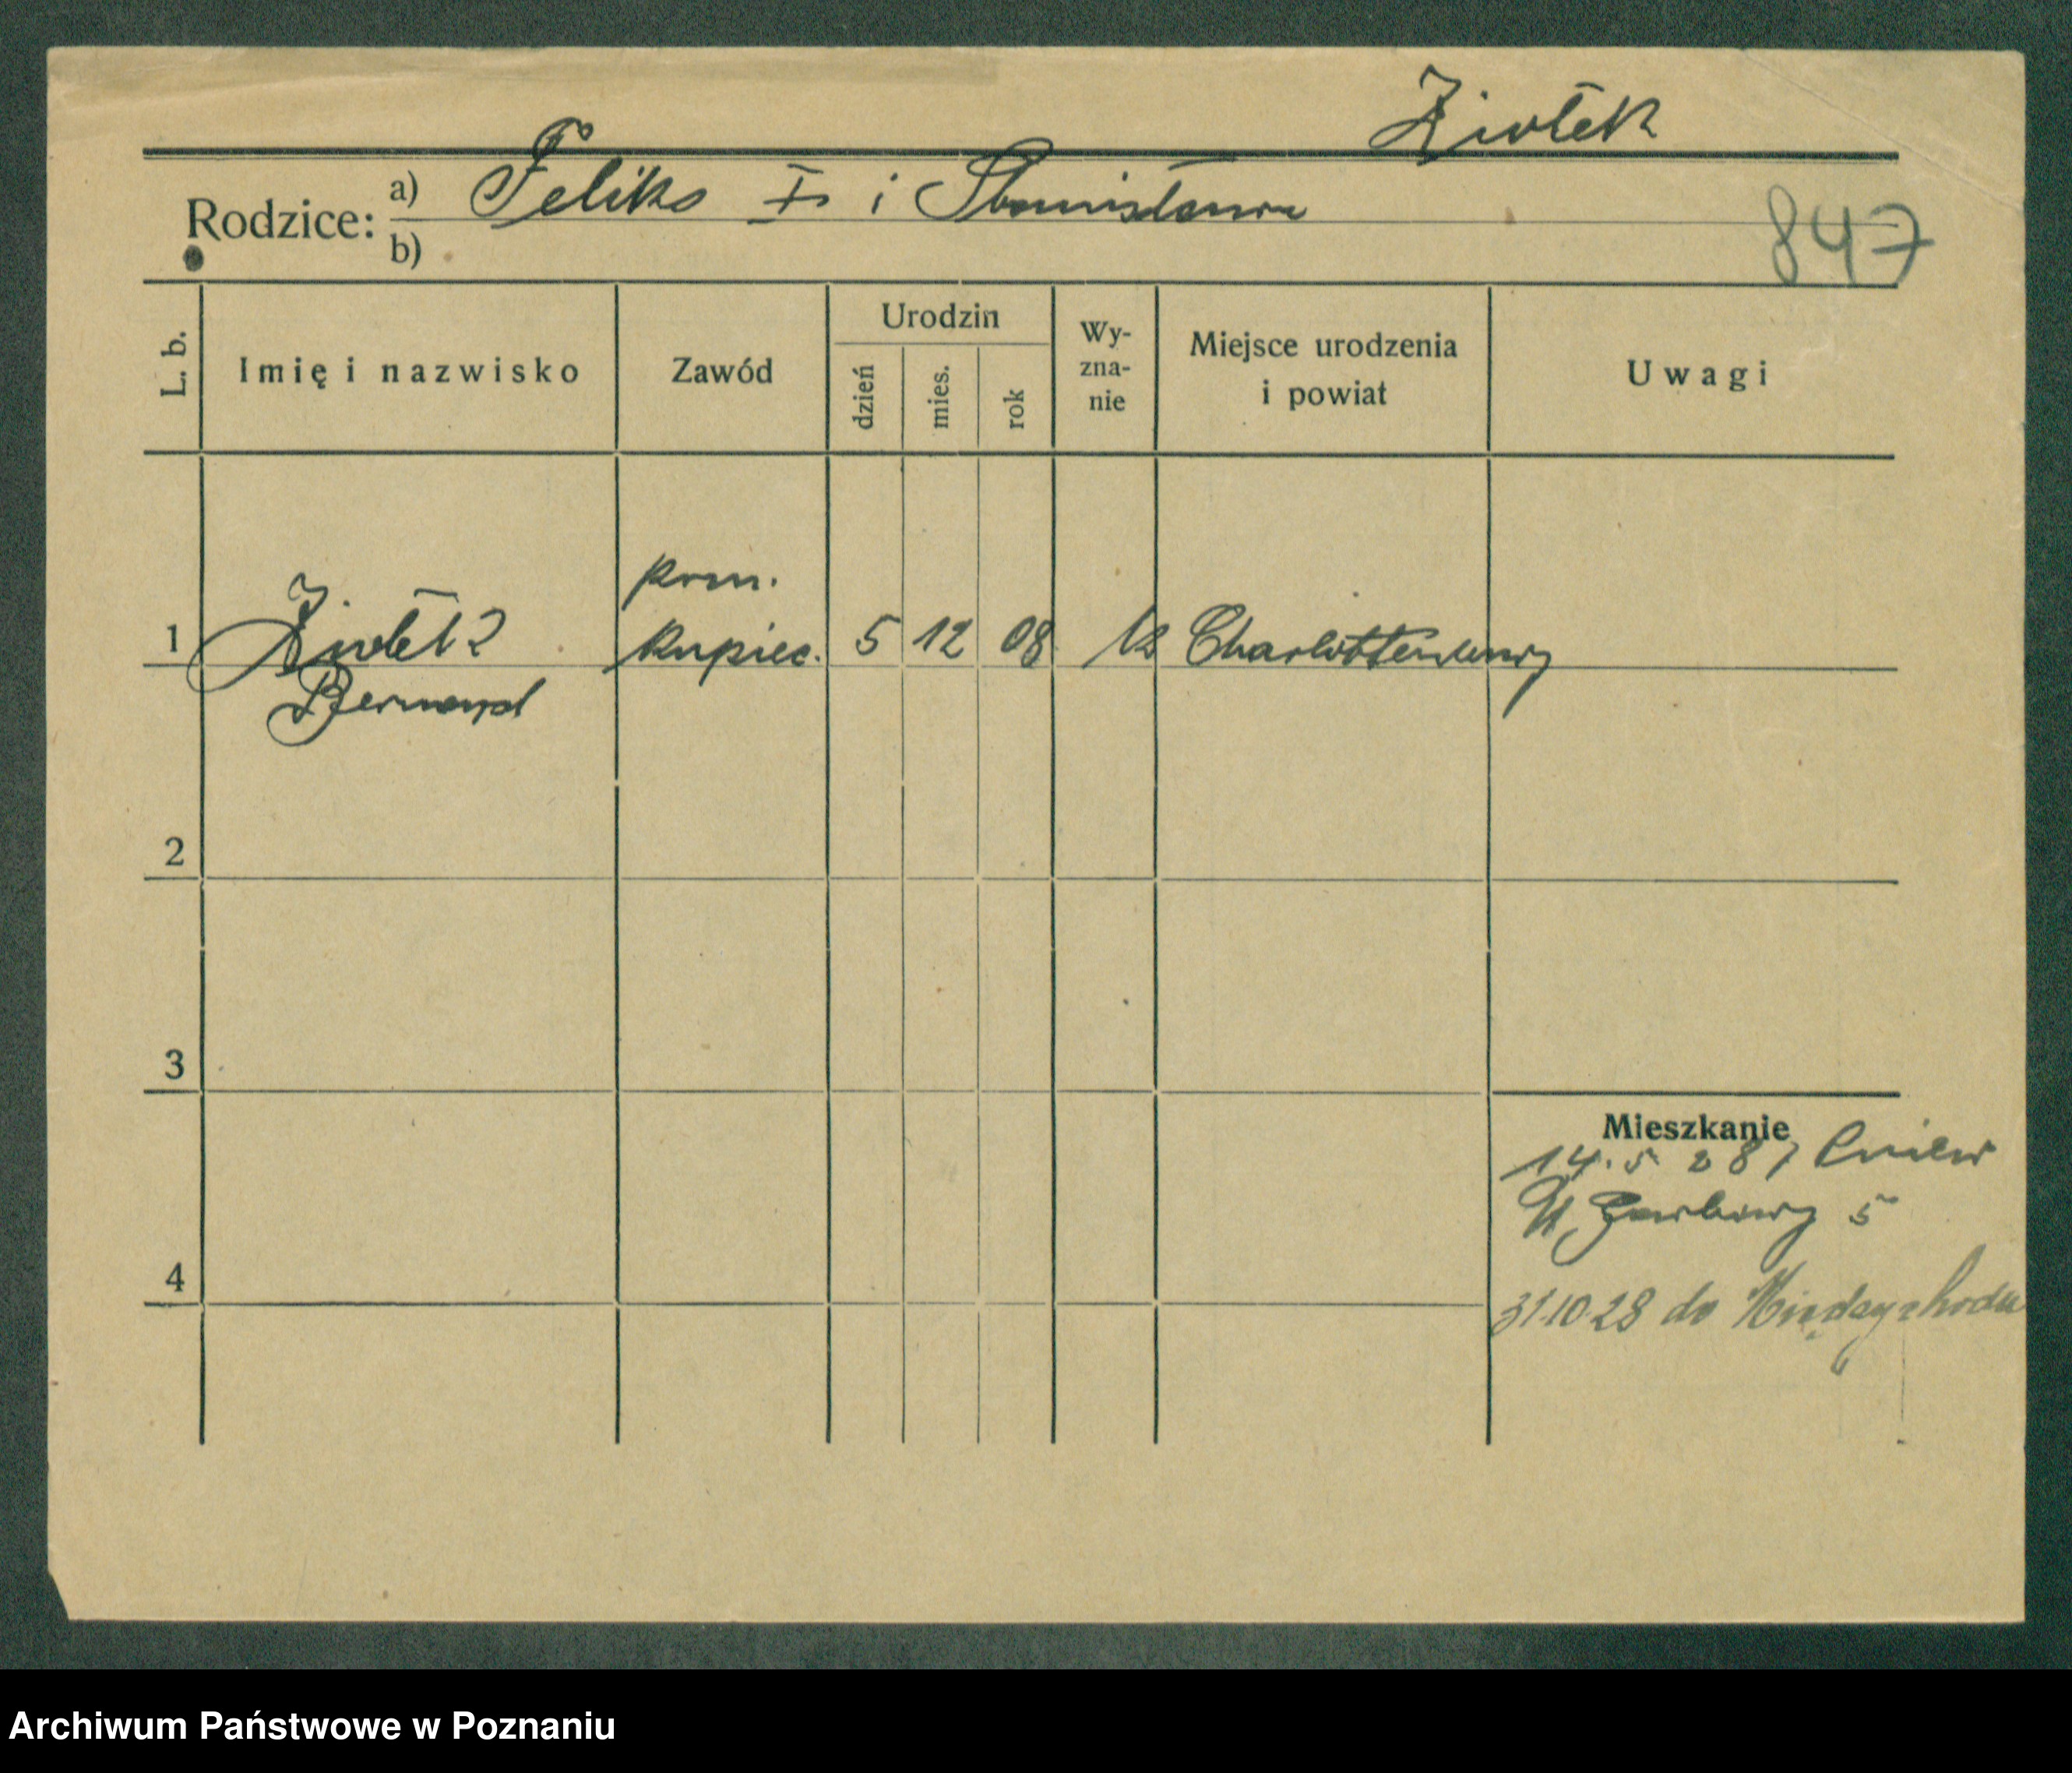 Ziołek
Rodzice: a) Feliks Z. i Stanisława
b)
847
L. b.
Imię i nazwisko
Zawód
Urodzin
dzień
mies.
rok
Wy-
zna-
nie
Miejsce urodzenia
i powiat
Uwagi
pom.
1 Ziołek kupiec. 5 12 08 k Charlottenburg
Bernard
2
3
Mieszkanie
14. 5 28
Garbary 5
4
31.10.28 do Międzychodu
Archiwum Państwowe w Poznaniu